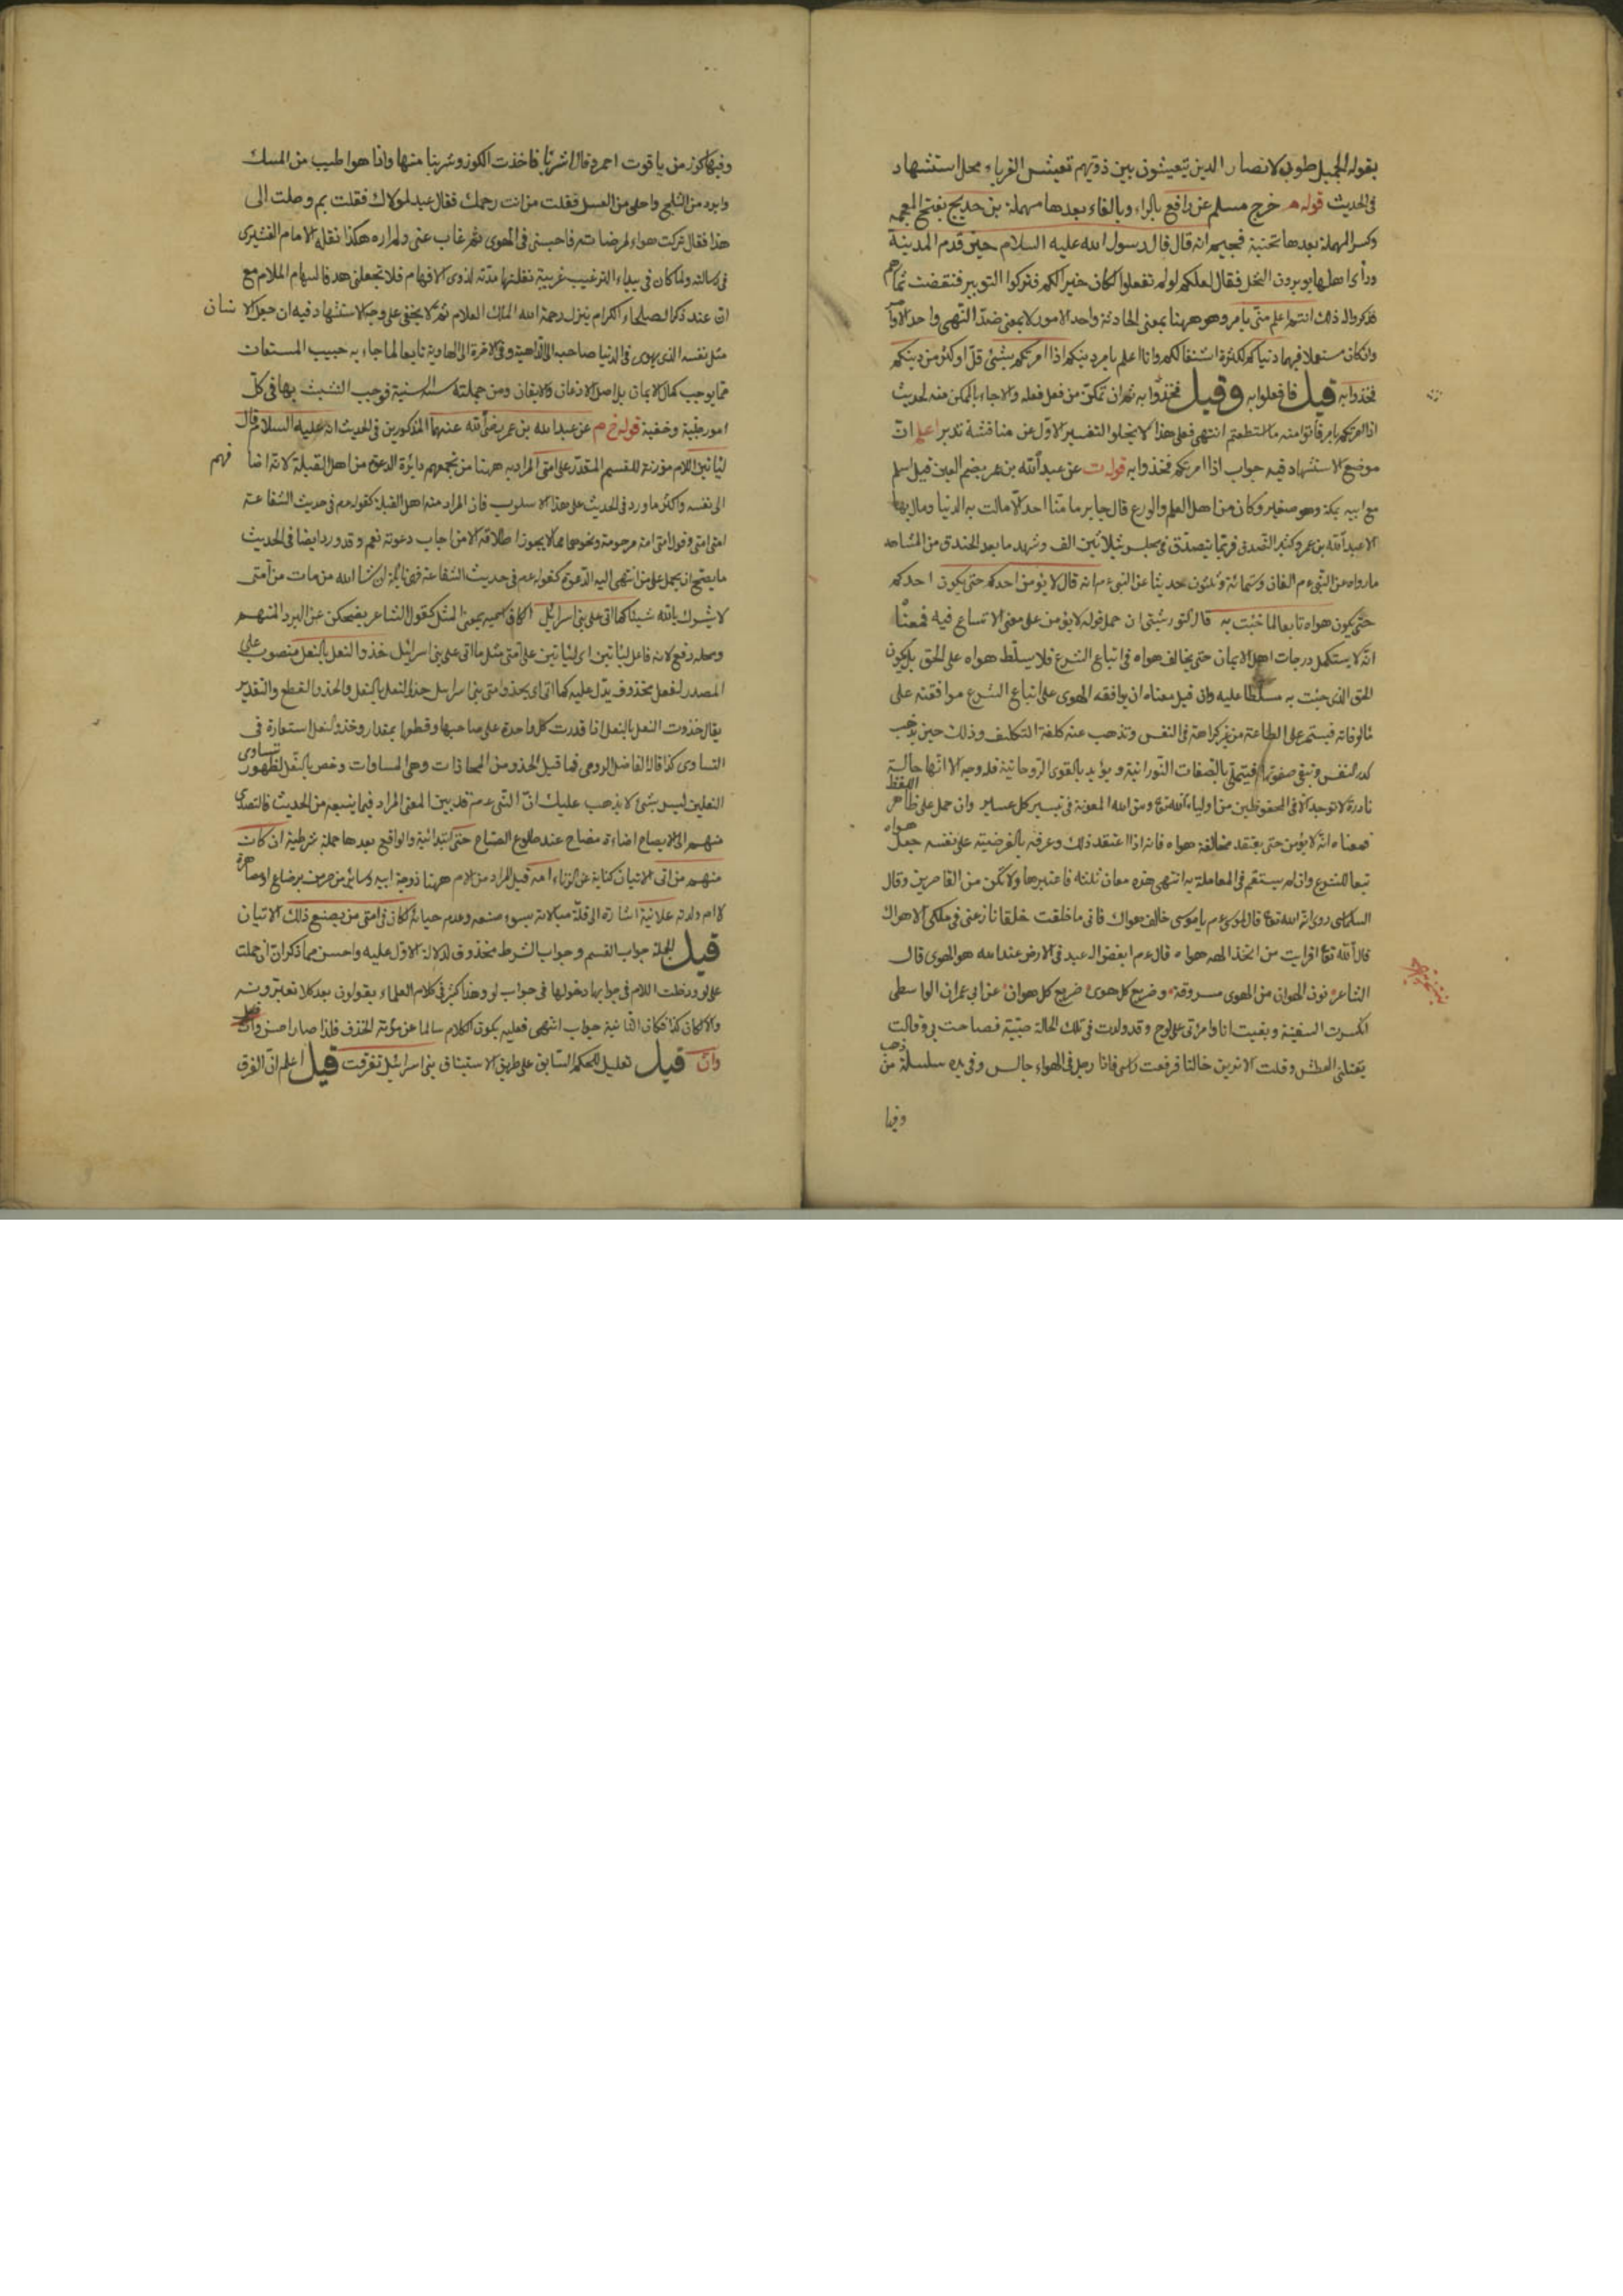 بقوله الجميل طوبى لانصار الدين يتعيشون بين ذويهم تعيش الغرباء محل استشهاد
في الحديث قوله م خرج مسلم عن رافع بالراء وبالفاء بعدها مهملة بن خديج بفتح المعجمة
وكسر المهملة بعدها تحتية فجيم انه قال قال رسول الله عليه السلام حين قدم المدينة
ورأى اهلها يوبرون النخل فقال لعلكم لو لم تفعلوا لكان خيرا لكم فتركوا التوبير فنقضت ثمارهم
فذكروا له ذلك انتم اعلم منى بامر وهو ههنا بمعنى الحادثة واحد الامور لا بمعنى ضد النهي واحد الاوامر
وان كان مستعملا فيهما دنياكم لكثرة اشتغالكم وانا اعلم بامر دينكم اذا امرتكم بشئ قل او كثر من دينكم
فخذوا به قيل فافعلوا به وقيل فخذوا به ثم ان تمكن من فعل فعله والا جاء بالممكن منه لحديث
اذا امرتكم بامر فاتوا منه ما استطعتم انتهى فعلى هذا لا يخلو التفسير الاول عن مناقشة تدبر اعلم ان
موضع الاستشهاد فيه جواب اذا امرتكم فخذوا به قوله ت عن عبد الله بن عمر بضم العين قيل اسلم
مع ابيه بمكة وهو صغير وكان من اهل العلم والورع قال جابر ما منا احد الا مالت به الدنيا ومال بها
الا عبد الله بن عمر وكثير التصدق فربما يتصدق في مجلس بثلاثين الف وشهد ما بعد الخندق من المشاهد
ما رواه عن النبي عم الفان وستمائة وثلثون حديثا عن النبي عم انه قال لا يؤمن احدكم حتى يكون احدكم
حتى يكون هواه تابعا لما جئت به قال التوربشتي ان حمل قوله لا يؤمن على معنى الاتساع فيه فمعناه
انه لا يستكمل درجات اهل الايمان حتى يخالف هواه في اتباع الشرع فلا يسلط هواه على الحق بل يكون
الحق الذي جئت به مسلطا عليه وان قيل معناه ان يوافقه الهوى على اتباع الشرع موافقته على
مألوفاته فيستمر على الطاعة من غير كراهة في النفس وتذهب عنه كلفة التكليف وذلك حين يذهب
كدر النفس وتبقى صفوتها فيتحلى بالصفات النورانية ويؤيد بالقوى الروحانية فله وجه الا انها حالة
نادرة لا توجد الا في المحفوظين من اولياء الله تع ومن الله المعونة في تيسير كل عسير وان حمل على ظاهر اللفظ
فمعناه انه لا يؤمن حتى يعتقد مخالفة هواه فانه اذا اعتقد ذلك وعرفه بالفرضية على نفسه جعل هواه
تبعا للشرع وان لم يستقم في المعاملة به انتهى هذه معان ثلثة فاعتبرها ولا تكن من القاصرين وقال
السلمى روى انه الله تع قال لموسى عم يا موسى خالف هواك فانى ما خلقت خلقا نازعنى في ملكى الا هواك
قال الله تع افرايت من اتخذ الهه هواه قال عم ابغض اله عبد في الارض عند الله هو الهوى قال
الشاعر نون الهوان من الهوى مسروقة وصريع كل هوى صريع كل هوان عن ابي عمران الواسطي
انكسرت السفينة وبقيت انا وامرأتي على لوح وقد ولدت في تلك الحالة صبية فصاحت بي وقالت
يقتلنى العطش وقلت الا ترين حالنا فرفعت راسى فاذا رجل في الهواء جالس وفي يده سلسلة من ذهب
وفيها
وفيها كوز من ياقوت احمر وقال اشربا فاخذت الكوز وشربنا منها واذا هو اطيب من المسك
وابرد من الثلج واحلى من العسل فقلت من انت رحمك فقال عبد لمولاك فقلت بم وصلت الى
هذا فقال تركت هواء لمرضاته فاجلسنى في الهوى ثم غاب عنى ولم اره هكذا نقله الامام القشيرى
في رسالته ولما كان في بيداء الترغيب غريبة نقلتها مدته لذوى الافهام فلا تجعلنى هدفا لسهام الملام مع
ان عند ذكر الصلحاء الكرام ينزل رحمة الله الملك العلام ثم لا يخفى على وجه الاستشهاد فيه ان جعل الانسان
مثل نفسه الذي يهوى في الدنيا صاحبه الى الداهية وفي الاخرة الى الهاوية تابعا لما جاء به حبيب المستعان
مما يوجب كمال الايمان بل اصل الاذعان والايقان ومن جملته سنة السنية فوجب التشبث بها في كل
امور جلية وخفية قوله خ م عن عبد الله بن عمر رضي الله عنهما المذكورين في الحديث انه عليه السلام قال
ليأتين اللام موزنة للقسم المقدر على امتى المراد به ههنا من تجمعهم دائرة الدعوة من اهل القبلة لانه اضافهم
الى نفسه واكثر ما ورد في الحديث على هذا الاسلوب فان المراد منه اهل القبلة كقوله عم في حديث الشفاعة
امتى امتى وقوله امتى امة مرحومة ونحوهما مما لا يجوز اطلاقه الا من اجاب دعوته نعم وقد ورد ايضا في الحديث
ما يصح ان يحمل على من انتهى اليه الدعوة كقوله عم في حديث الشفاعة فهى نائلة ان شاء الله من مات من امتى
لا يشرك بالله شيئا كما اتى على بنى اسرائل الكاف اسمية بمعنى المثل كقول الشاعر يضحكن عن البرد المنهم
ومحله رفع لانه فاعل ليأتين اى ليأتين على امتى مثل ما اتى على بنى اسرائيل حذو النعل بالنعل منصوب على
المصدر لفعل محذوف يدل عليه كما اتى اى يحذو امتى بنى اسرايل حذو النعل بالنعل والحذو القطع والتقدير
يقال حذوت النعل بالنعل اذا قدرت كل واحدة على صاحبها وقطعها بمقدار وحذو النعل استعارة في
التساوى كذا قال الفاضل الرومى فما قيل الحذو من المحاذات وهى المساوات وخص بالنعل لظهور تساوى
النعلين ليس بشئ لا يذهب عليك ان النبي عم قد بين المعنى المراد فيما يتبعه من الحديث فالتصدى
منهم الى الايضاح اضاءة مصباح عند طلوع الصباح حتى ابتدائية والواقع بعدها جملة شرطية ان كان
منهم من اتى الاتيان كناية عن الزناء امه قيل المراد من الام ههنا زوجة ابيه وسائر من حرمن برضاع او مصاهرة
لا ام ولدته علانية اشارة الى قلة مبالاته بسوء صنعه وعدم حيائه لكان في امتى من يصنع ذلك الاتيان
قيل الجملة جواب القسم وجواب الشرط محذوف لدلالة الاول عليه واحسن مما ذكر ان ان حملت
على لو ودخلت اللام في جوابها دخولها في جواب لو وهذا كثير في كلام العلماء يقولون بعد كلا تعتبرونه
والا لكان كذا فكان الثانية جواب انتهى فعليه يكون الكلام سالما عن مؤنة الحذف فلذا صار احسن
وان قيل تعليل للحكم السابق على طريق الاستيناف بنى اسرائيل تفرقت قيل اعلم ان الفرق